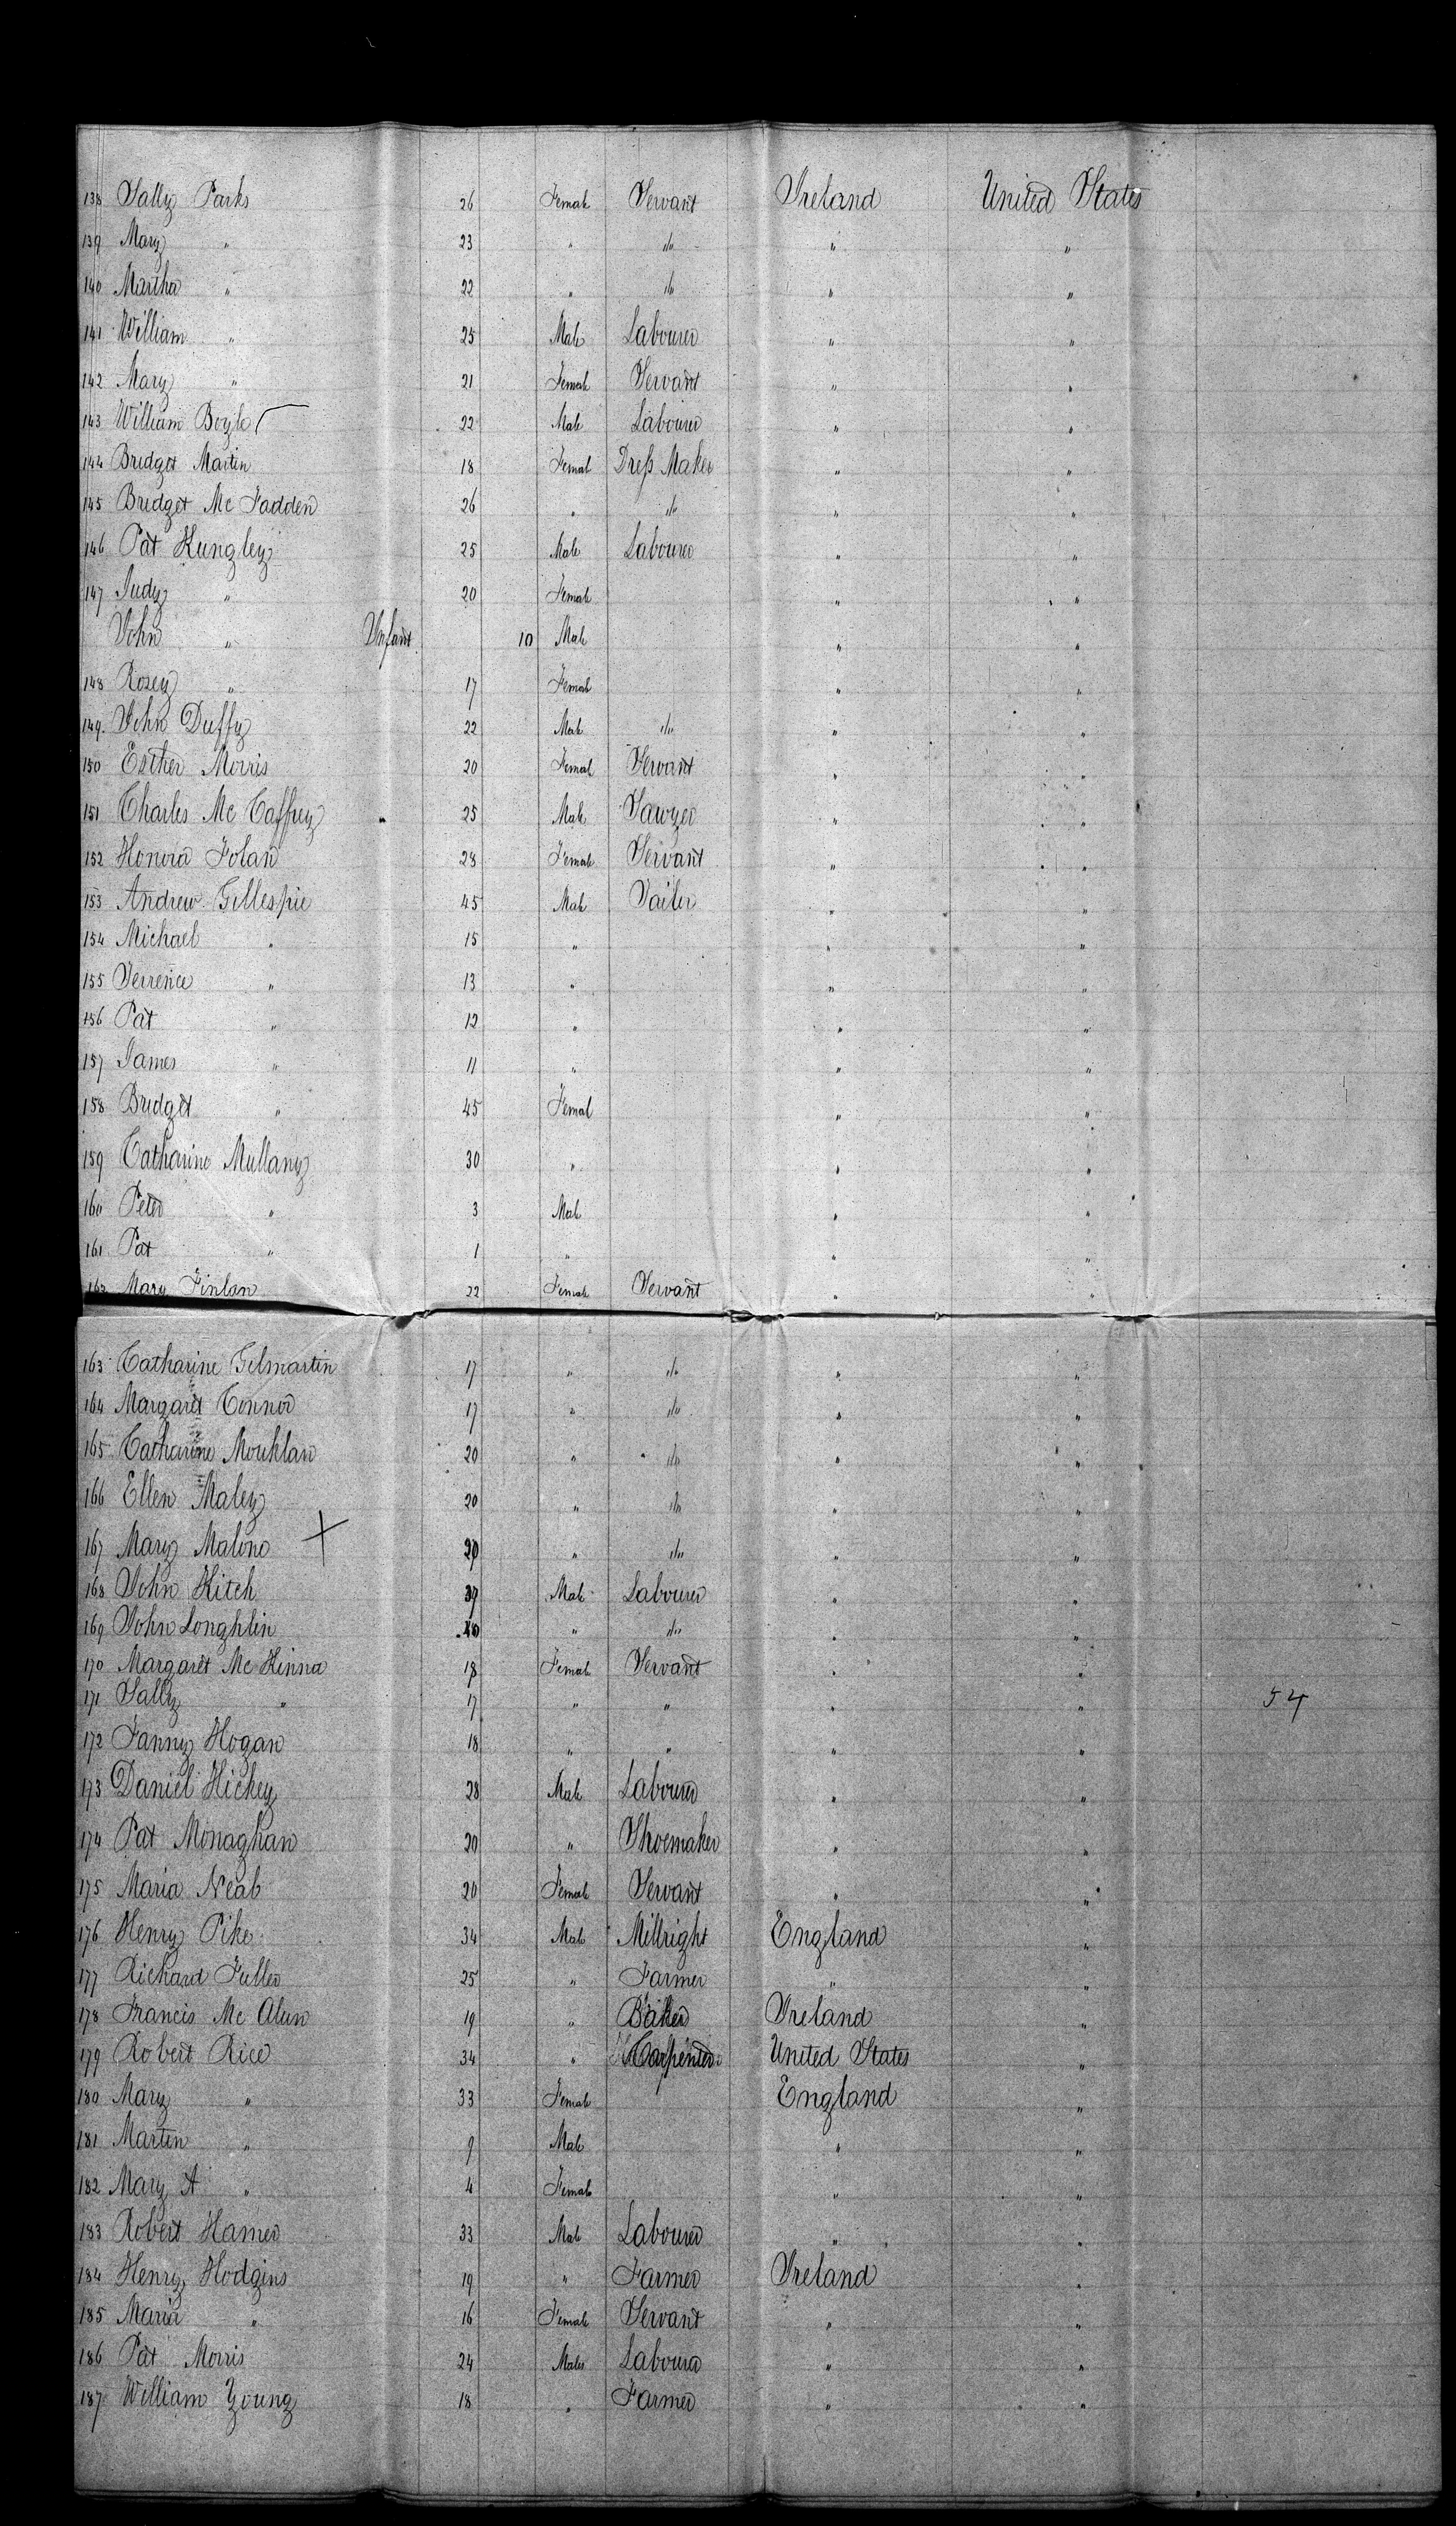 138 Sally Parks 26 Female Servant Ireland United States
139 Mary " 23 " do " "
140 Martha " 22 " do " "
141 William " 25 Male Labourer " "
142 Mary " 21 Female Servant " "
143 William Boyle 22 Male Labourer " "
144 Bridget Martin 18 Female Dress Maker " "
145 Bridget Mc Fadden 26 " do " "
146 Pat Kungley 25 Male Labourer " "
147 Judy " 20 Female " "
John " Infant 10 Male " "
148 Rosey " 17 Female " "
149 John Duffy 22 Male do " "
150 Esther Morris 20 Female Servant " "
151 Charles Mc Caffrey 25 Male Sawyer " "
152 Honora Folan 28 Female Servant " "
153 Andrew Gillespie 45 Male Tailor " "
154 Michael " 15 " " "
155 Terrence " 13 " " "
156 Pat " 12 " " "
157 James " 11 " " "
158 Bridget " 45 Female " "
159 Catharine Mullany 30 " " "
160 Peter " 3 Male " "
161 Pat " 1 " " "
162 Mary Finlan 22 Female Servant " "
163 Catharine Gilmartin 17 " do " "
164 Margaret Connor 17 " do " "
165 Catharine Mouhlan 20 " do " "
166 Ellen Maley 20 " do " "
167 Mary Malone X 20 " do " "
168 John Kitch Male Labourer " "
169 John Loughlin " do " "
170 Margaret Mc Kinna 18 Female Servant " "
171 Sally " 17 " " " " 54
172 Fanny Hogan 18 " " " "
173 Daniel Hickey 28 Male Labourer " "
174 Pat Monaghan 20 " Shoemaker " "
175 Maria Neab 20 Female Servant " "
176 Henry Pike 34 Male Millright England "
177 Richard Fuller 25 " Farmer " "
178 Francis Mc Alun 19 " Baker Ireland "
179 Robert Rice 34 " Carpenter United States "
180 Mary " 33 Female England "
181 Martin " 9 Male " "
182 Mary A " 4 Female " "
183 Robert Hamer 33 Male Labourer " "
184 Henry Hodgins 19 " Farmer Ireland "
185 Maria " 16 Female Servant " "
186 Pat Morris 24 Male Labourer " "
187 William Young 18 " Farmer " "